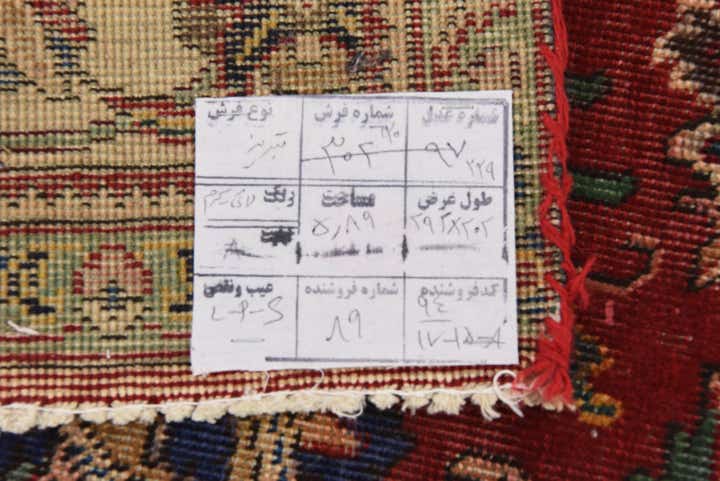 شماره عدل شماره فرش نوع فرش
۹۷ ۳۰۲ تبریز
۲۲۹
طول عرض مساحت رنگ
۲۹۲×۲۰۲ ۵٫۸۹ لاکی کرم
کدفروشنده شماره فروشنده عیب ونقص
۹۴ ۸۹ L-P-S